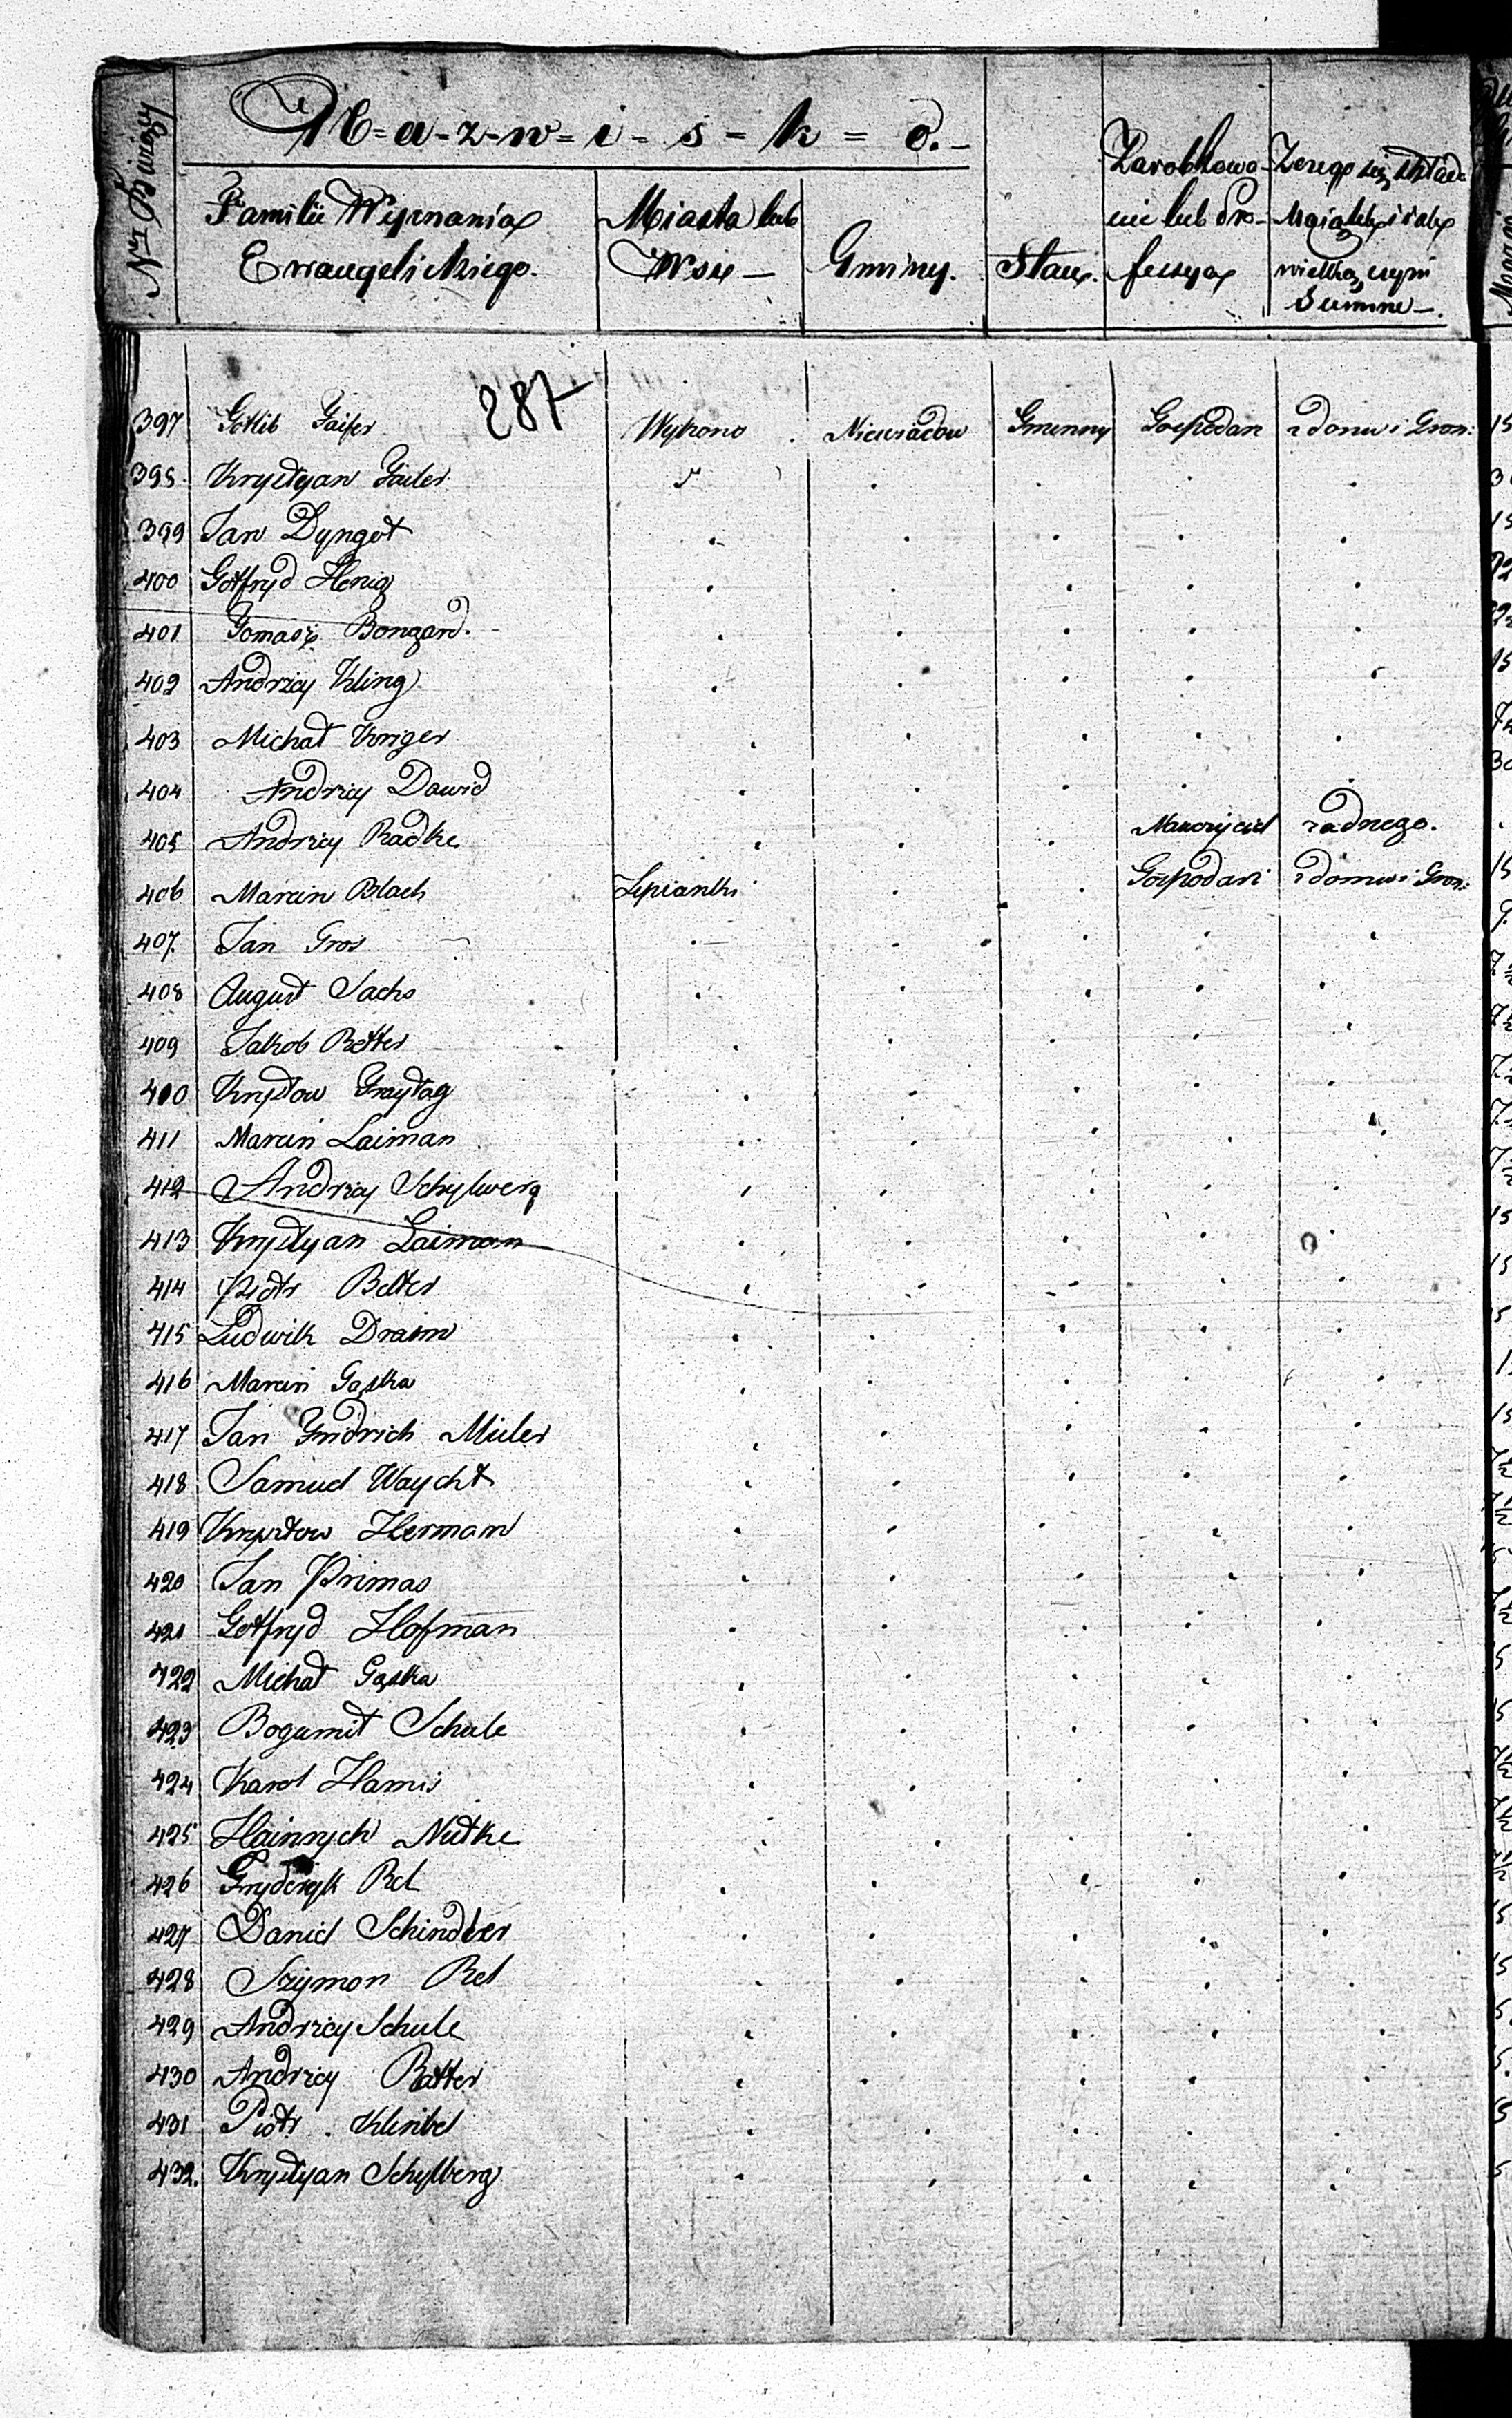 Nr Bieżący
N=a=z=w=i=s=k=o.
Familii Wyznania Ewangelickiego.
Miasta lub Wsie
Gminy.
Stan.
Zarobkowanie lub Professya
Z czego się składa Maiątek i iaką wielką czyni Summe.
287
397 Gotlib Faifer Wykono Niewiadow Gminny Gospodarz z domu i Grun:
398 Krystyan Failer
399 Jan Dyngot
400 Gotfryd Henig
401 Tomasz Bongard.
402 Andrzey Kling
403 Michał Kriger
404 Andrzey Dawid
405 Andrzey Radke Nauczyciel żadnego.
406 Marcin Blach Lipianki Gospodarz z domu i Grun:
407. Jan Gros
408 August Sachs
409 Jakob Better
410 Krystow Fraytag
411 Marcin Laiman
412 Andrzey Schylwerg
413 Krystyan Laiman
414 Piotr Better
415 Ludwik Draim
416 Marcin Gąska
417 Jan Fridrich Miler
418 Samuel Waycht
419 Krystow Herman
420 Jan Primas
421 Gotfryd Hofman
422 Michał Gąska
423 Bogumił Schule
424 Karol Hamis
425 Hainrych Nutke
426 Fryderyk Rel
427 Daniel Schindler
428 Szymon Rel
429 Andrzey Schule
430 Andrzey Batter
431 Piotr Klinbel
432. Krystyan Schylberg